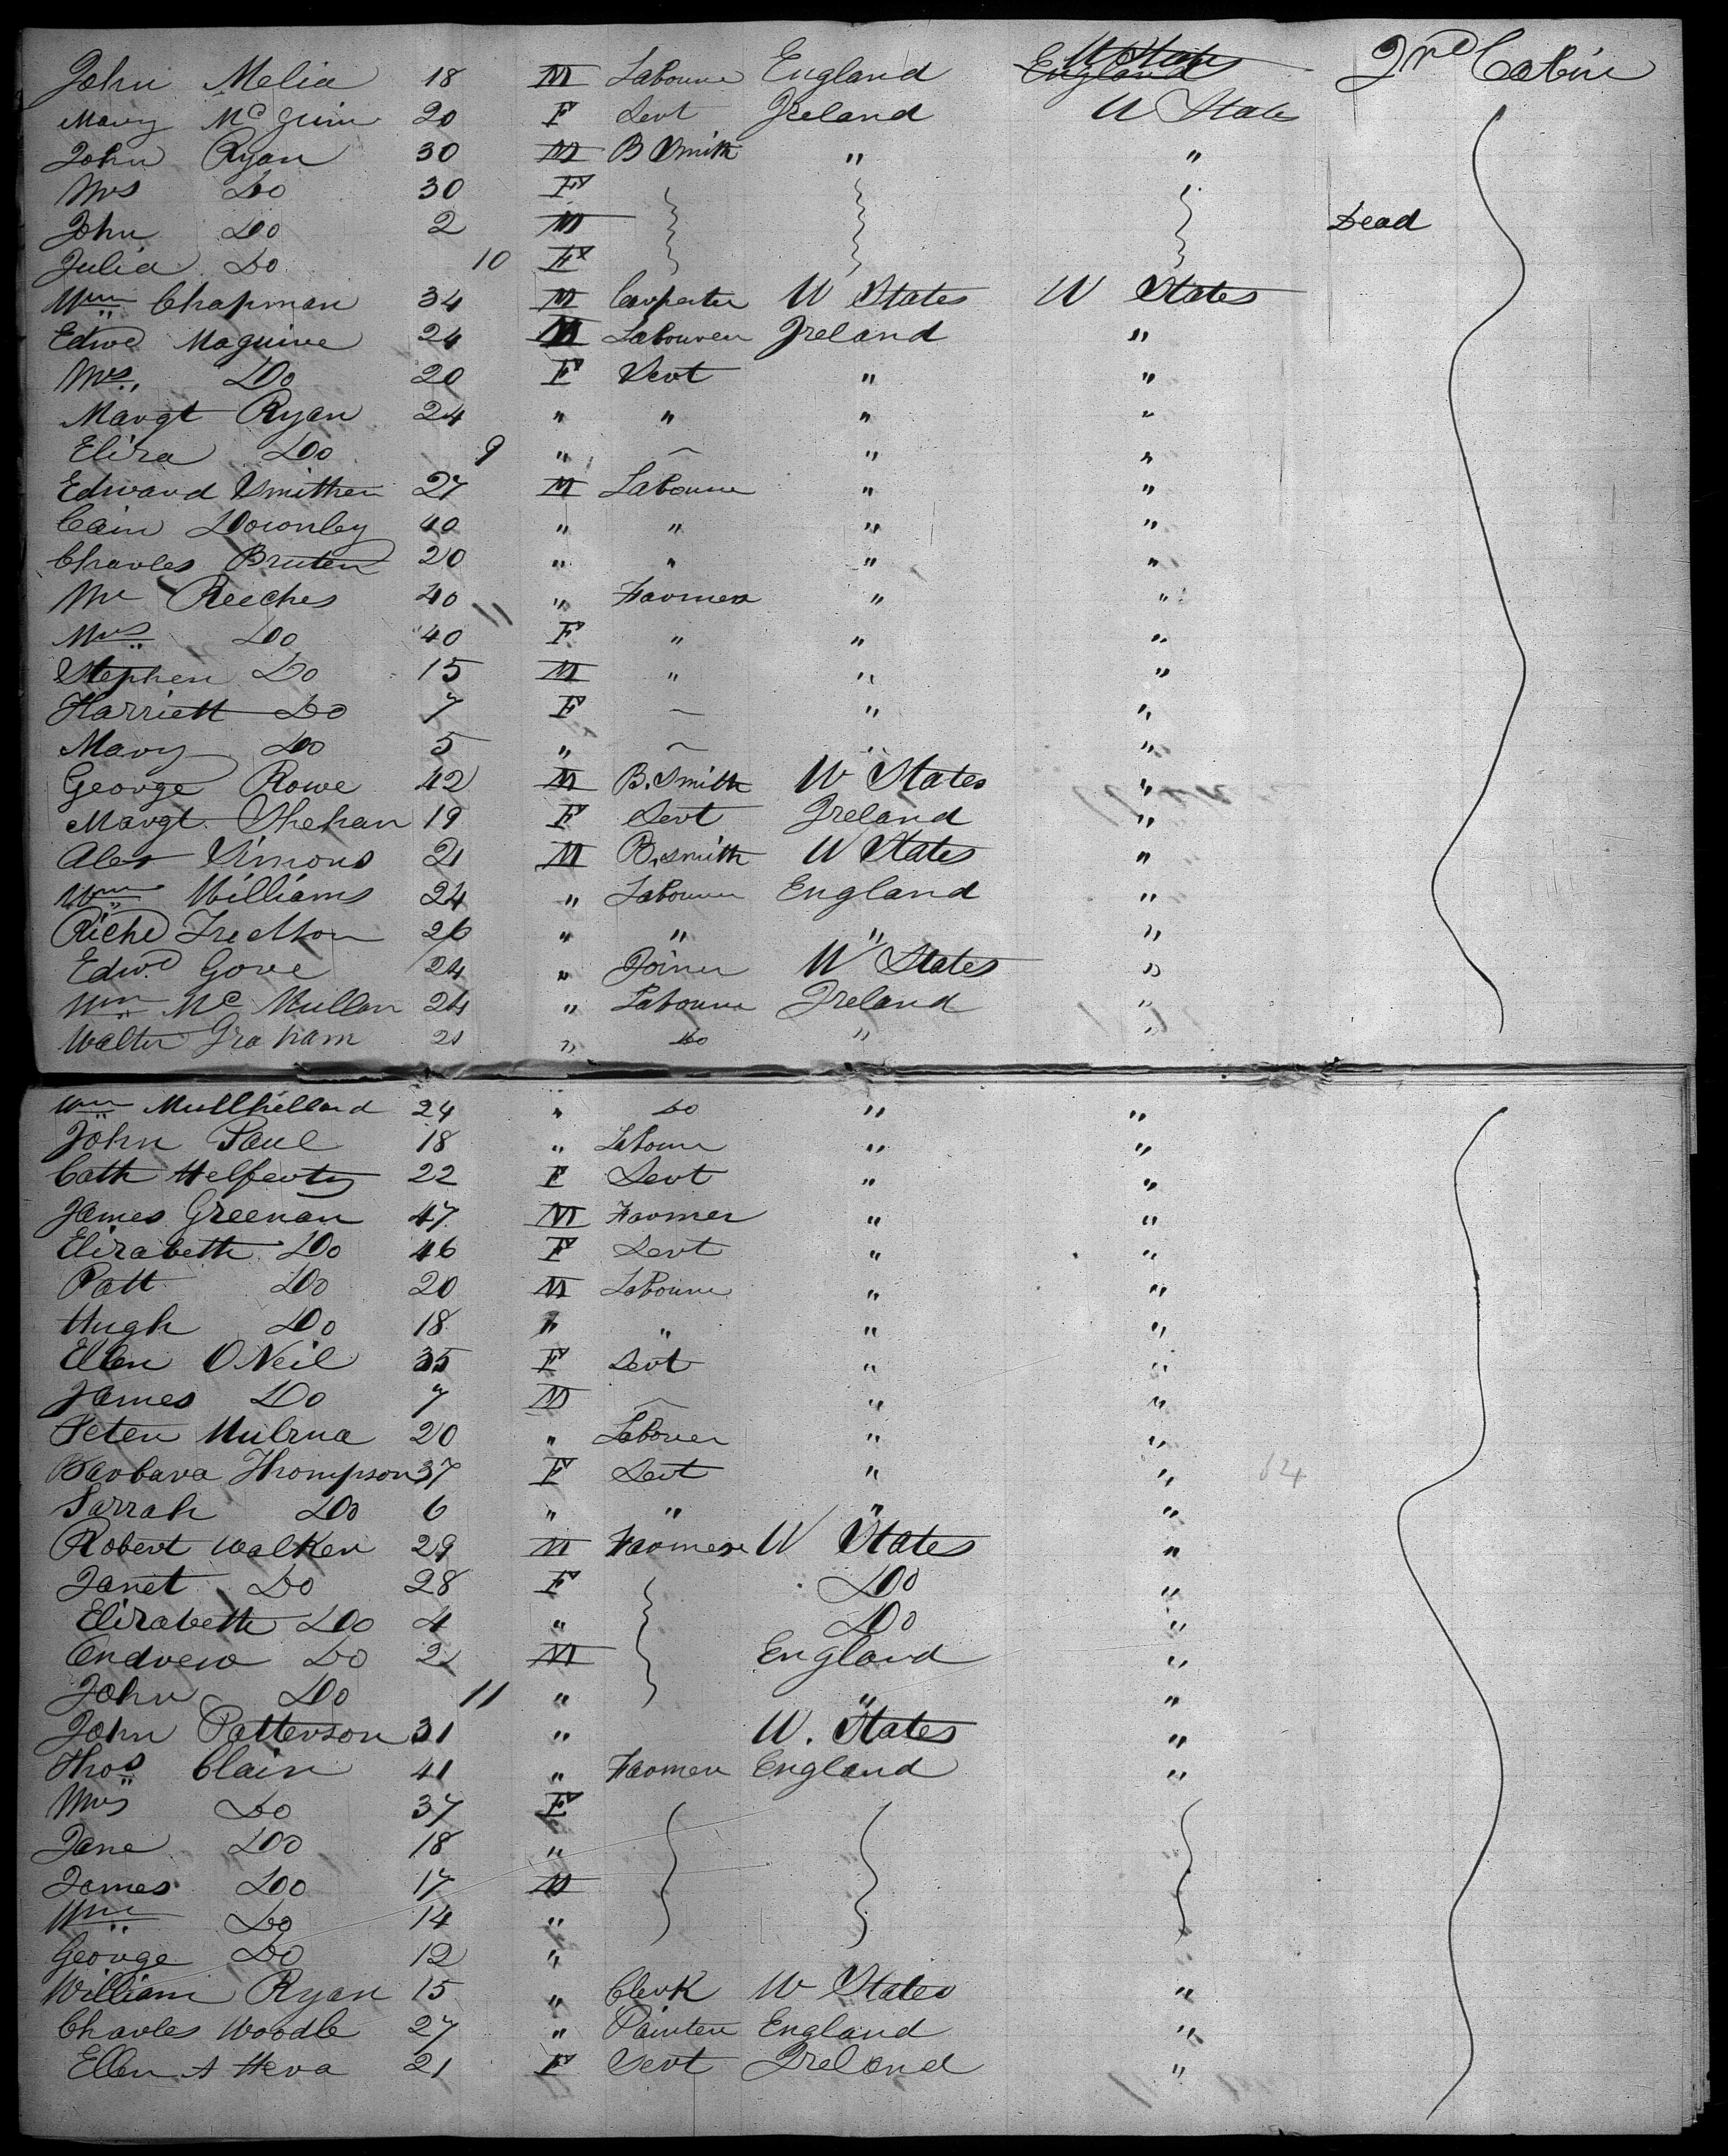 John Melia 18 M Labourer England England U States 2nd Cabin
Mary McGuin 20 F Sevt Ireland U State
John Ryan 30 M B Smith " "
Mrs Do 30 F
John Do 2 M Dead
Julia Do 10 F
Wm Chapman 34 M Carpenter U States U States
Edwd Maguire 24 M Labourer Ireland "
Mrs Do 20 F Sevt " "
Margt Ryan 24 " " " "
Eliza Do 9 " – " "
Edward Smither 27 M Labourer " "
Cain Downley 40 " " " "
Charles Bruten 20 " " " "
Mr Reeches 40 " Farmer " "
Mrs Do 40 F " " "
Stephen Do 15 M " " "
Harriett Do 7 F – " "
Mary Do 5 " – " "
George Rowe 42 M B. Smith U States "
Margt Shehan 19 F Sevt Ireland "
Alex Simons 21 M B. Smith U States "
Wm Williams 24 " Labourer England "
Richd 26 " " " "
Edwd Gove 24 " Joiner U States "
Wm McMullan 24 " Labourer Ireland "
Walter Graham 21 " Do " "
Wm Mullhilland 24 " Do " "
John Paul 18 " Labourer " "
Cath Helferty 22 F Sevt " "
James Greenan 47 M Farmer " "
Elizabeth Do 46 F Sevt " "
Patt Do 20 M Labourer " "
Hugh Do 18 " " " "
Ellen O Neil 35 F Sevt " "
James Do 7 M – " "
Peter Mulrua 20 " Labourer " "
Barbara Thompson 37 F Sevt " " 64
Sarrah Do 6 " " " "
Robert Walker 29 M Farmer U States "
Janet Do 28 F Do "
Elizabeth Do 4 " Do "
Andrew Do 2 M England "
John Do 11 " " "
John Patterson 31 " U. States "
Thos Clain 41 " Farmer England "
Mrs Do 37 F
Jane Do 18 "
James Do 17 M
Wm Do 14 "
George Do 12 "
William Ryan 15 " Clerk U States "
Charles Woodle 27 " Painter England "
Ellen A Heva 21 F Sevt Ireland "